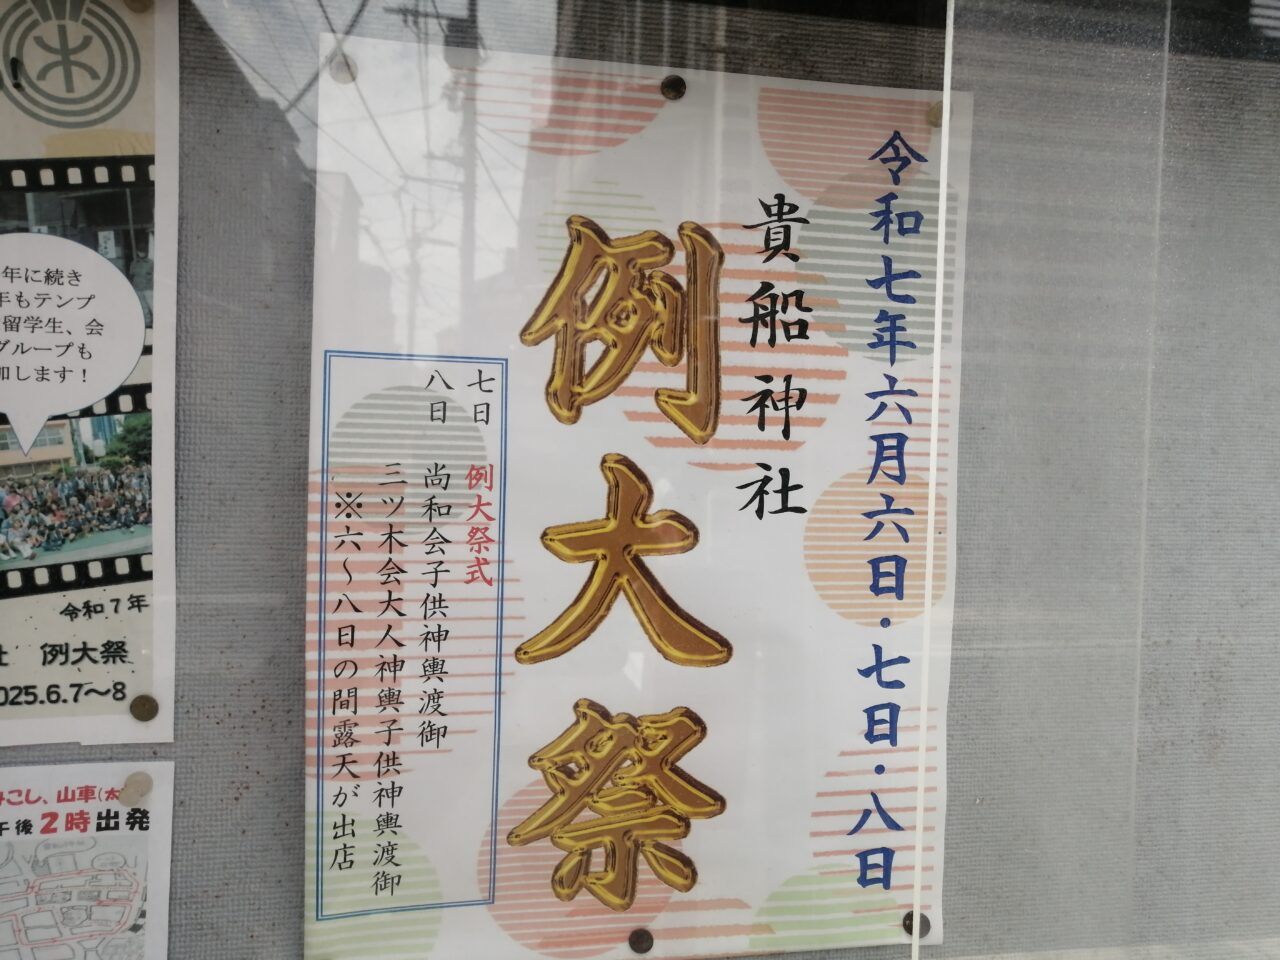 令和七年六月六日・七日・八日
貴船神社
例大祭
七日 例大祭式
八日 尚和会子供神輿渡御
三ツ木会大人神輿子供神輿渡御
※六〜八日の間露天が出店
年に続き
年もテンプ
留学生、会
グループも
加します！
令和7年
社 例大祭
025.6.7〜8
みこし、山車(太
午後2時出発